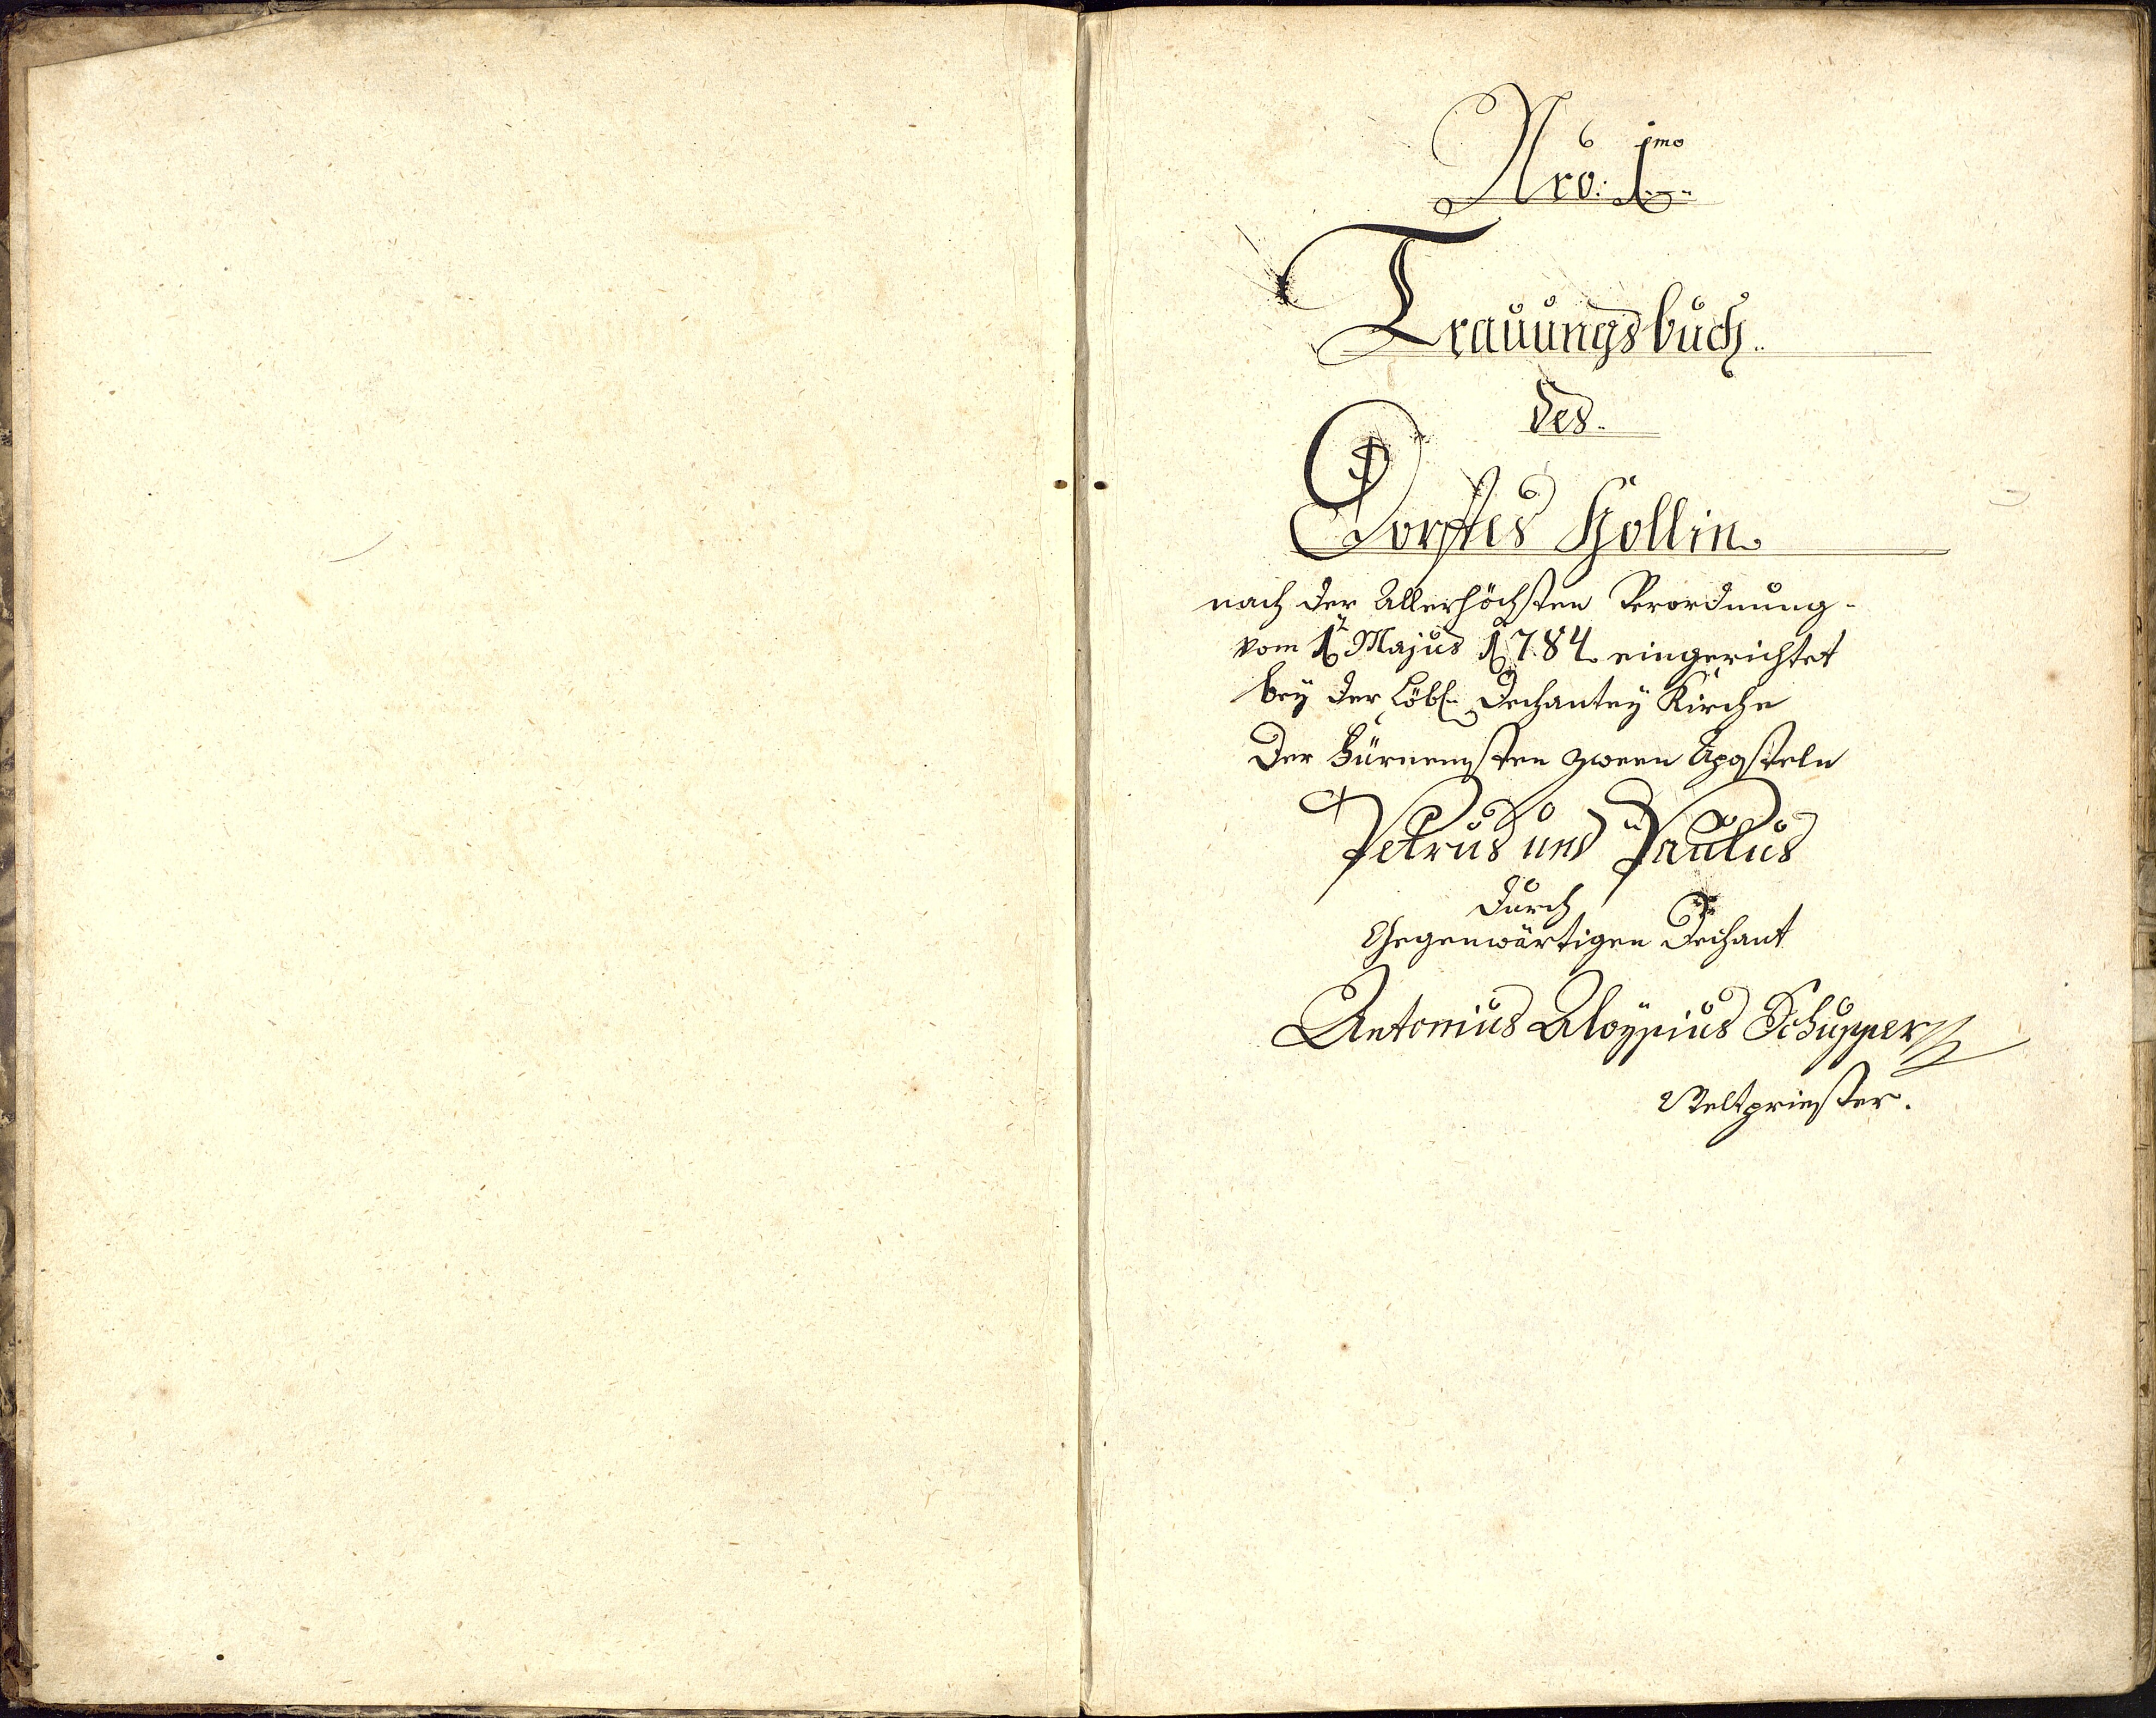 Nro: 1mo
Trauungsbuch.
des
Dorffes Hollin
nach der Allerhöchsten Verordnung
vom 1t Majus 1784 eingerichtet
bey der Löbl. Dechantey Kirche
der Fürnemsten zween Aposteln
Petrus und Paulus
durch
Gegenwärtigen Dechant
Antonius Aloysius Schupper
Weltpriester.